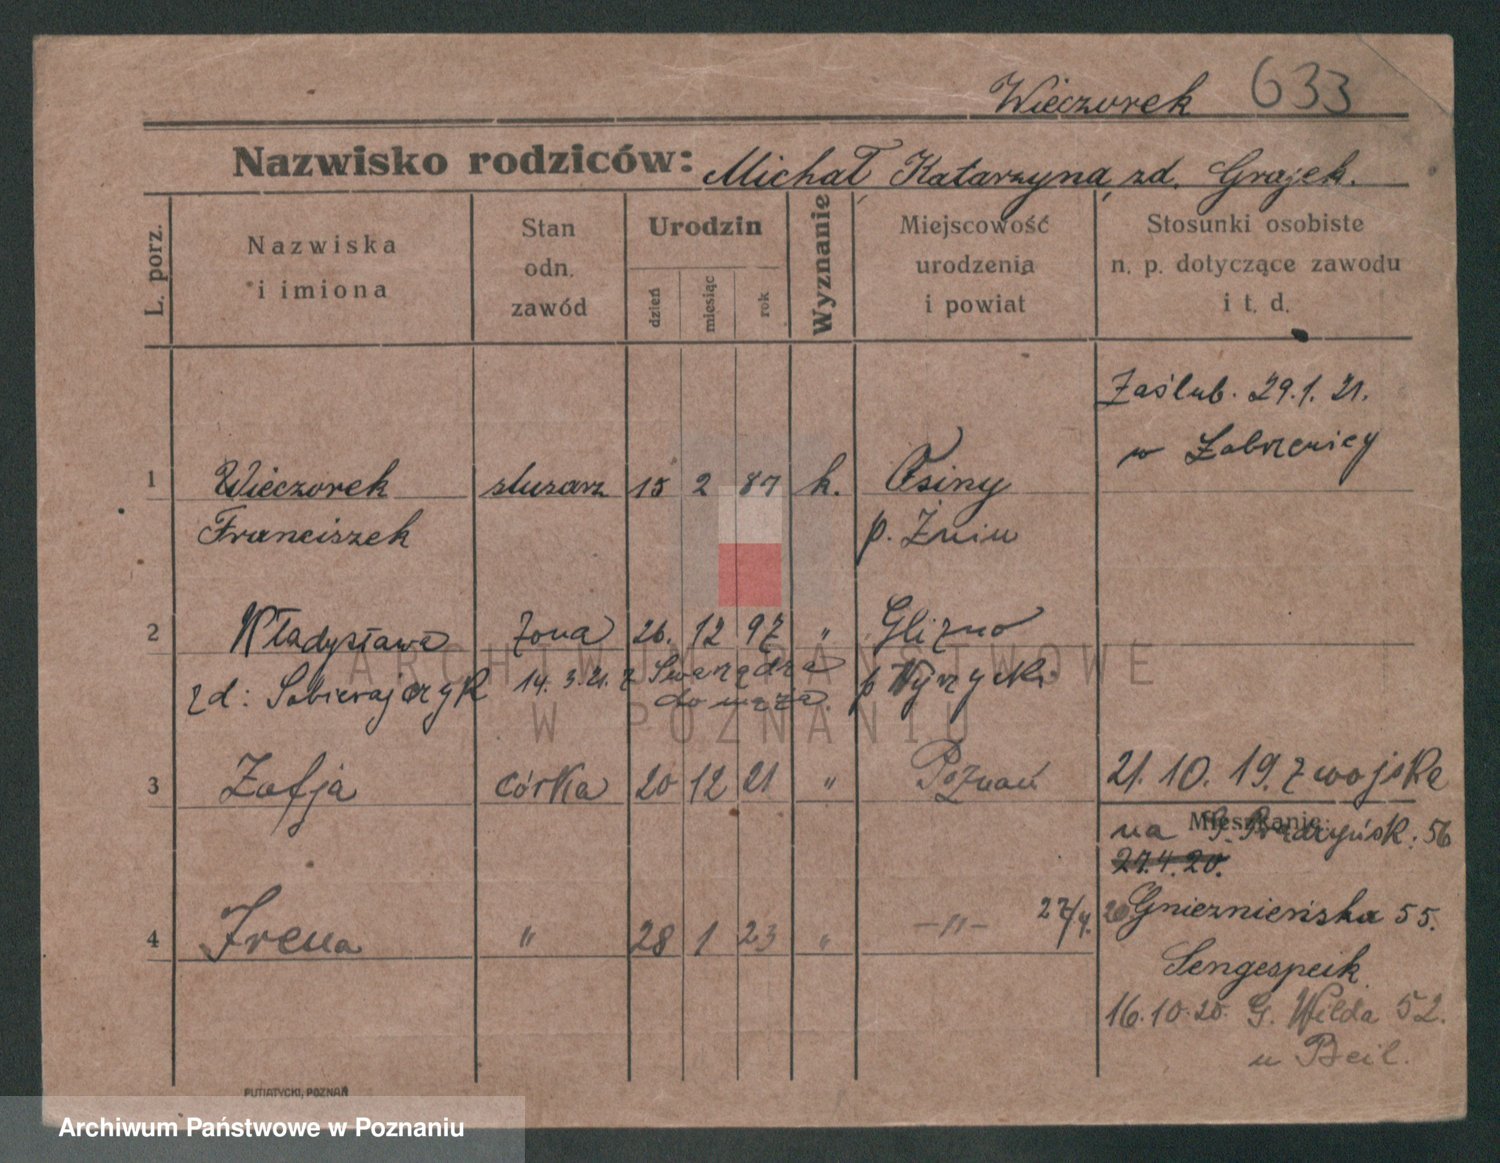 Wieczorek 633
Nazwisko rodziców: Michał Katarzyna zd. Grajek.
L. porz.
Nazwiska
i imiona
Stan
odn.
zawód
Urodzin
dzień
miesiąc
rok
Wyznanie
Miejscowość
urodzenia
i powiat
Stosunki osobiste
n. p. dotyczące zawodu
i t. d.
Zaślub. 29.1.21.
w Łobżenicy
1 Wieczorek ślusarz 15 2 87 k. Osiny
Franciszek p. Żnin
2 Władysława żona 26. 12 97 " Glizno
zd: Sobierajczyk 14.3.21. z Swarzędza p Wyrzycki
do męża.
3 Zofja córka 20 12 21 " Poznań
21. 10. 19. z wojska
Mieszkanie:
na 56
27.4.20.
4 Irena " 28 1 23 " -"- 27/4. 20 Gnieźnieńska 55.
Sengespeik
16.10.20. G. Wilda 52.
u Beil.
PUTIATYCKI, POZNAŃ
ARCHIWUM PAŃSTWOWE
W POZNANIU
Archiwum Państwowe w Poznaniu